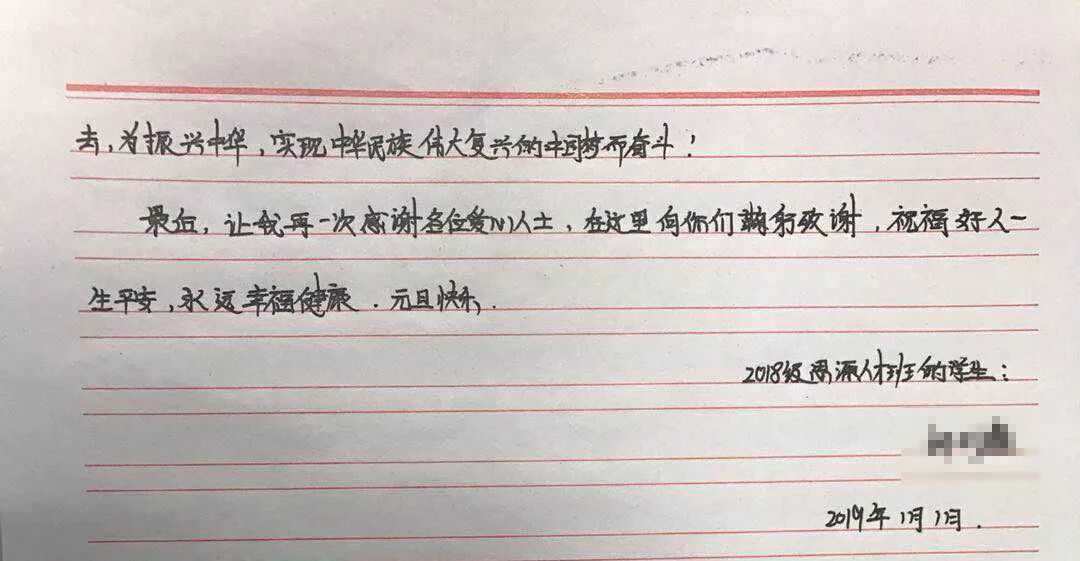 去，为振兴中华，实现中华民族伟大复兴的中国梦而奋斗！
最后，让我再一次感谢各位爱心人士，在这里向你们鞠躬致谢，祝福好人一
生平安，永远幸福健康．元旦快乐．
2018级思源人才班的学生：
2019年1月1日．